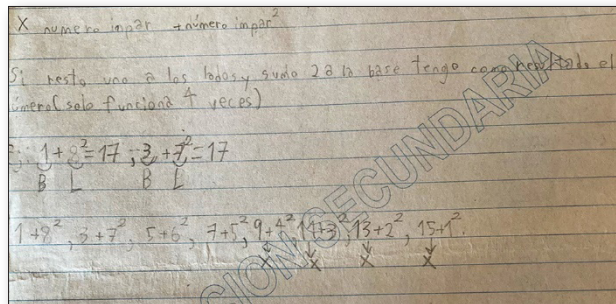 X numero inpar +número impar²
Si resto uno a los lados y sumo 2 a la base tengo como resultado el
úmero (solo funciona 4 veces)
1+8²=17 ; 3+7²=17
B L B L
1+8², 3+7², 5+6², 7+5², 9+4², 11+3², 13+2², 15+1².
X X X X
CION SECUNDARIA